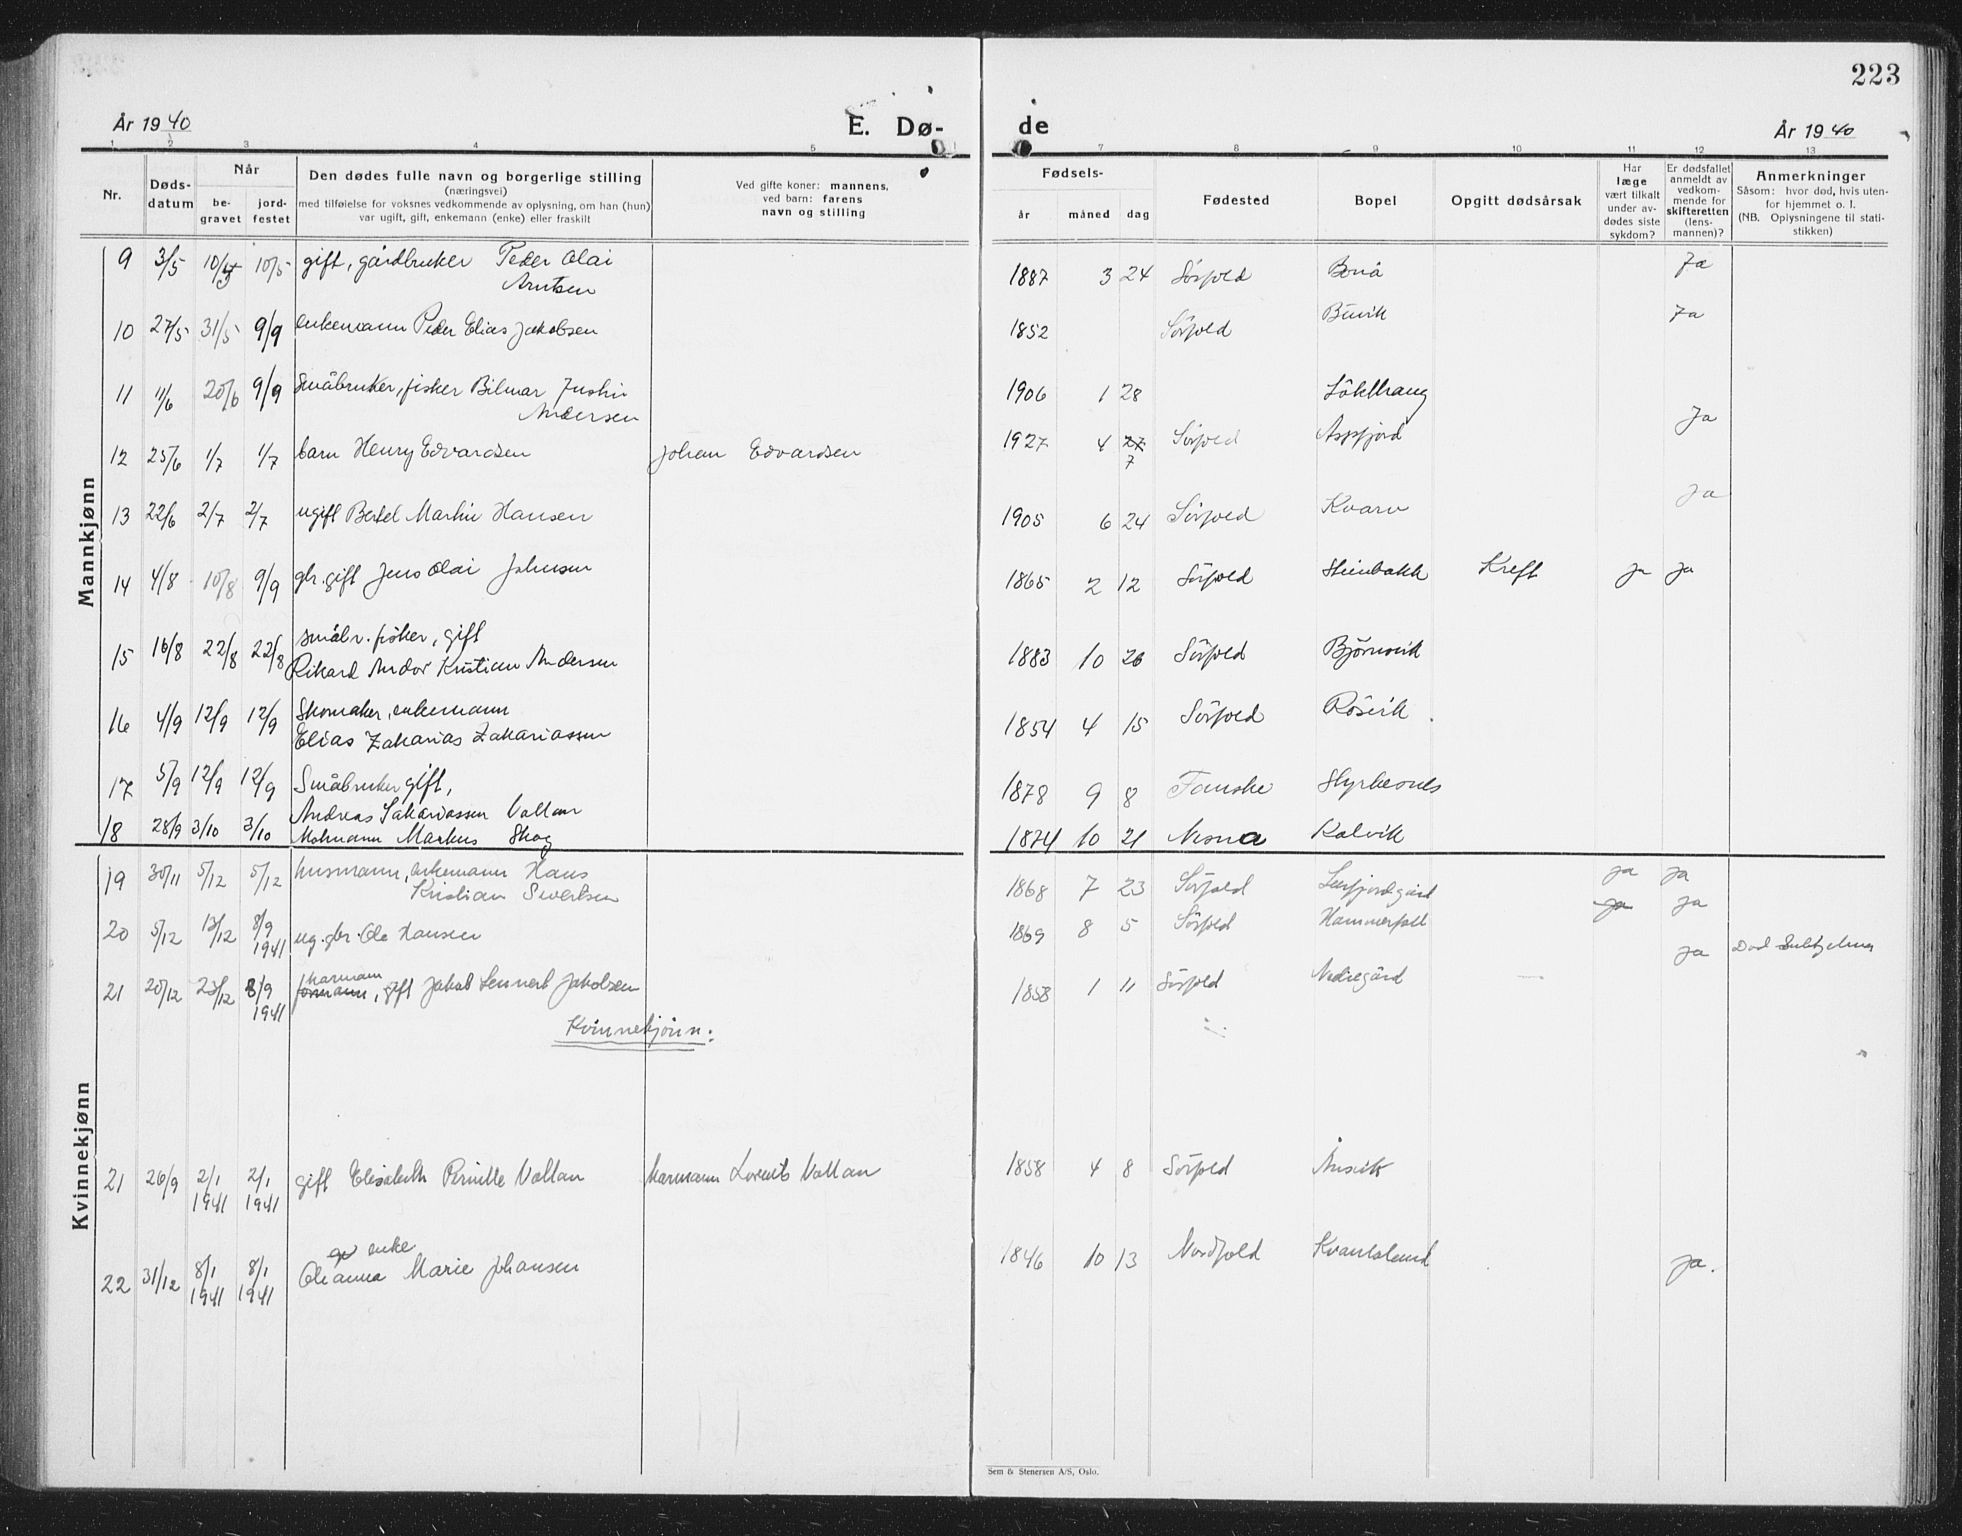 223
År 1940
E. Dø-
de
År 1940
1 2 3 4 5
7 8 9 10 11 12 13
Nr.
Døds-
datum
Når
be-
gravet
jord-
festet
Den dødes fulle navn og borgerlige stilling
(næringsvei)
med tilføielse for voksnes vedkommende av oplysning, om han (hun)
var ugift, gift, enkemann (enke) eller fraskilt
Ved gifte koner: mannens,
ved barn: farens
navn og stilling
Fødsels-
år måned dag
Fødested
Bopel
Opgitt dødsårsak
Har
læge
vært tilkalt
under av-
dødes siste
sykdom?
Er dødsfallet
anmeldt av
vedkom-
mende for
skifteretten
(lens-
mannen)?
Anmerkninger
Såsom: hvor død, hvis uten-
for hjemmet o. l.
(NB. Oplysningene til stati-
stikken)
Mannkjønn
9 3/5 10/5 10/5 gift, gårdbruker Peder Olai
Arntsen
1887 3 24 Sørfold Bonå Ja
10 27/5 31/5 9/9 enkemann Peder Elias Jakobsen
1852 Sørfold Buvik Ja
11 1/6 20/6 9/9 Småbruker, fisker Bilmar Justin
Andersen
1906 1 28 Løkthaug
12 25/6 1/7 1/7 barn Henry Edvardsen Johan Edvardsen
1927 4 27 7 Sørfold Aspfjord Ja
13 22/6 2/7 2/7 ugift Bertel Martin Hansen
1905 6 24 Sørfold Kvarv Ja
14 4/8 10/8 9/9 gbr. gift Jens Olai Johnsen
1865 2 12 Sørfold Steinbakk Kreft ja ja
15 16/8 22/8 22/8 småbr. fisker, gift
Rikard Andor Kristian Andersen
1883 10 26 Sørfold Bjørnsvik
16 4/9 12/9 12/9 Skomaker, enkemann
Elias Zakarias Zakariassen
1854 4 15 Sørfold Røsvik.
17 5/9 12/9 12/9 Småbruker gift,
Andreas Sakariassen Valtan
1878 9 8 Fauske Styrkesnes
18 28/9 3/10 3/10 Markus Skog
1874 10 21 Nesna Kalvik
19 30/11 5/12 5/12 husmann, enkemann Hans
Kristian Sivertsen
1868 7 23 Sørfold ja ja
20 5/12 13/12 8/9 1941 ug. gbr. Ole Hansen
1869 8 5 Sørfold Hammerfall ja ja
21 20/12 23/12 8/9 1941 kårmann, gift Jakob Lennert Jakobsen
1858 1 11 Sørfold Nedregård ja Død Sulitjelma
Kvinnekjønn:
Kvinnekjønn
21 26/9 2/1 1941 2/1 1941 gift Elisabeth Pernille Valtan kårmann Lorents Valtan
1858 4 8 Sørfold Ånsvik
22 31/12 8/1 1941 8/1 1941 enke
Oleanna Marie Johansen
1846 10 13 Nordfold Kvantoland ja.
Sem & Stenersen A/S, Oslo.